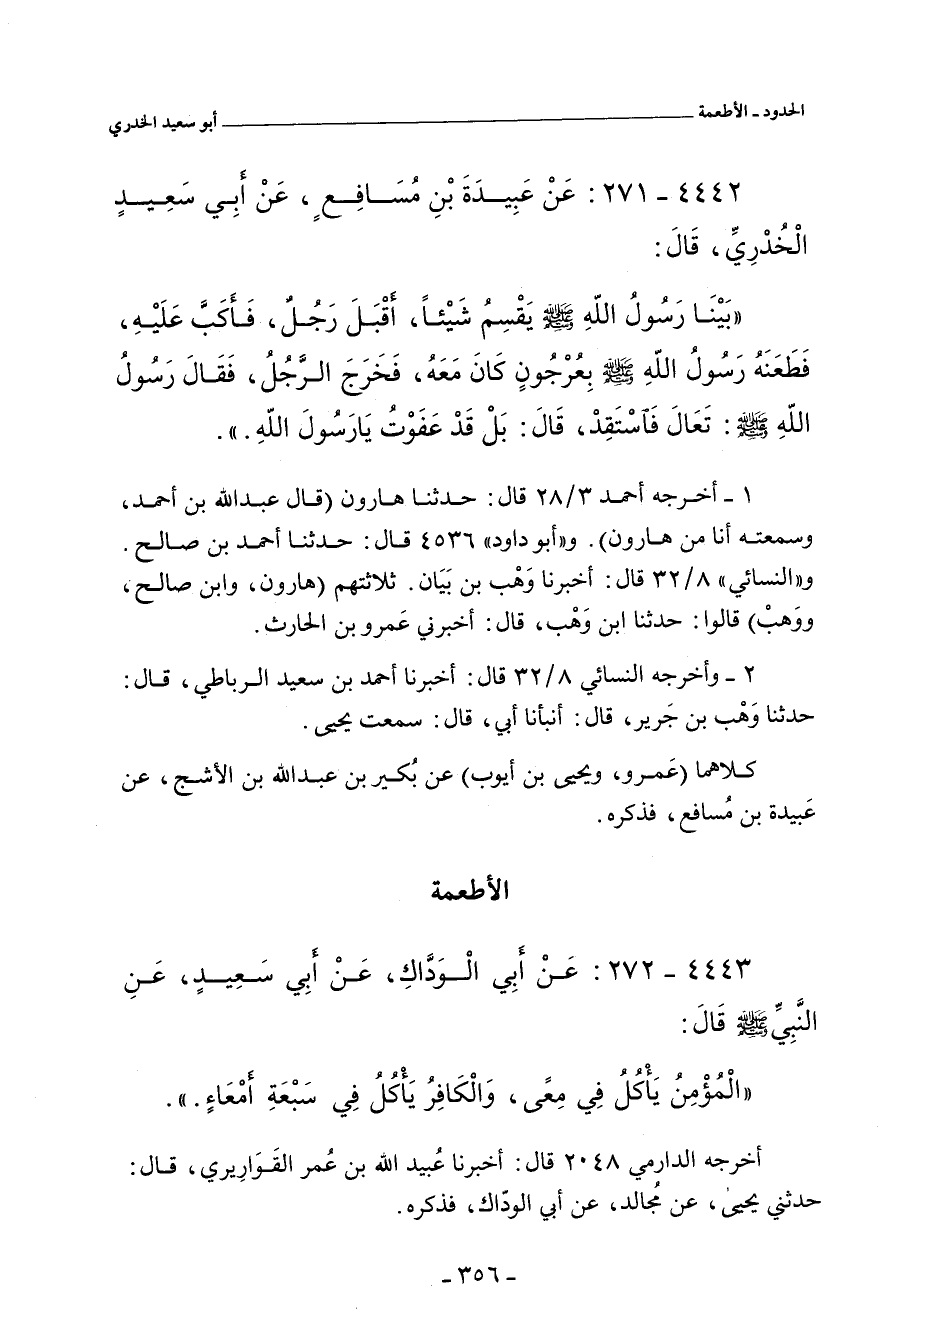 الحدود ـ الأطعمة ــــــــــــــــــ أبو سعيد الخدري
٤٤٤٢ ـ ٢٧١ : عَنْ عَبِيـدَةَ بْنِ مُسَـافِـعٍ ، عَنْ أَبِـي سَعِيـدٍ
الْخُدْرِيِّ ، قَالَ :
«بَيْنَـا رَسُولُ اللّهِ ﷺ يَقْسِمُ شَيْئـاً، أَقْبَـلَ رَجُـلٌ، فَـأَكَبَّ عَلَيْـهِ،
فَطَعَنَهُ رَسُولُ اللّهِ ﷺ بِعُرْجُونٍ كَانَ مَعَهُ، فَخَرَجَ الـرَّجُلُ، فَقَـالَ رَسُولُ
اللّهِ ﷺ : تَعَالَ فَاسْتَقِدْ، قَالَ : بَلْ قَدْ عَفَوْتُ يَارَسُولَ اللّهِ . ».
١ ـ أخـرجه أحمـد ٢٨/٣ قال : حـدثنـا هـارون (قـال عبـدالله بن أحمـد،
وسمعتـه أنا من هـارون). و«أبو داود» ٤٥٣٦ قـال : حـدثنـا أحمـد بن صـالـح .
و«النسائي» ٣٢/٨ قال : أخبرنا وَهْب بن بَيَان. ثلاثتهم (هارون، وابن صالـح،
ووَهبْ) قالوا : حدثنا ابن وَهْب، قال : أخبرني عَمرو بن الحارث.
٢ ـ وأخرجه النسائي ٣٢/٨ قال : أخبرنا أحمد بن سعيد الـرباطي، قـال :
حدثنا وَهْب بن جَرير، قال : أنبأنا أبي، قال : سمعت يحيى .
كـلاهما (عَمـرو، ويحيى بن أيوب) عن بُكـير بن عبـدالله بن الأشـج ، عن
عَبيدة بن مُسافع ، فذكره .
الأطعمة
٤٤٤٣ ـ ٢٧٢ : عَـنْ أَبِي الْـوَدَّاكِ، عَـنْ أَبِي سَـعِيـدٍ، عَـنِ
النَّبِيِّ ﷺ قَالَ :
«الْمُؤْمِنُ يَأْكُلُ فِي مِعًى ، وَالْكَافِرُ يَأْكُلُ فِي سَبْعَةِ أَمْعَاءٍ . ».
أخرجه الدارمي ٢٠٤٨ قال : أخبرنا عُبيد الله بن عُمر القَـوَاريري، قـال :
حدثني يحيىٰ، عن مُجالد، عن أبي الودّاك، فذكره.
ـ ٣٥٦ ـ